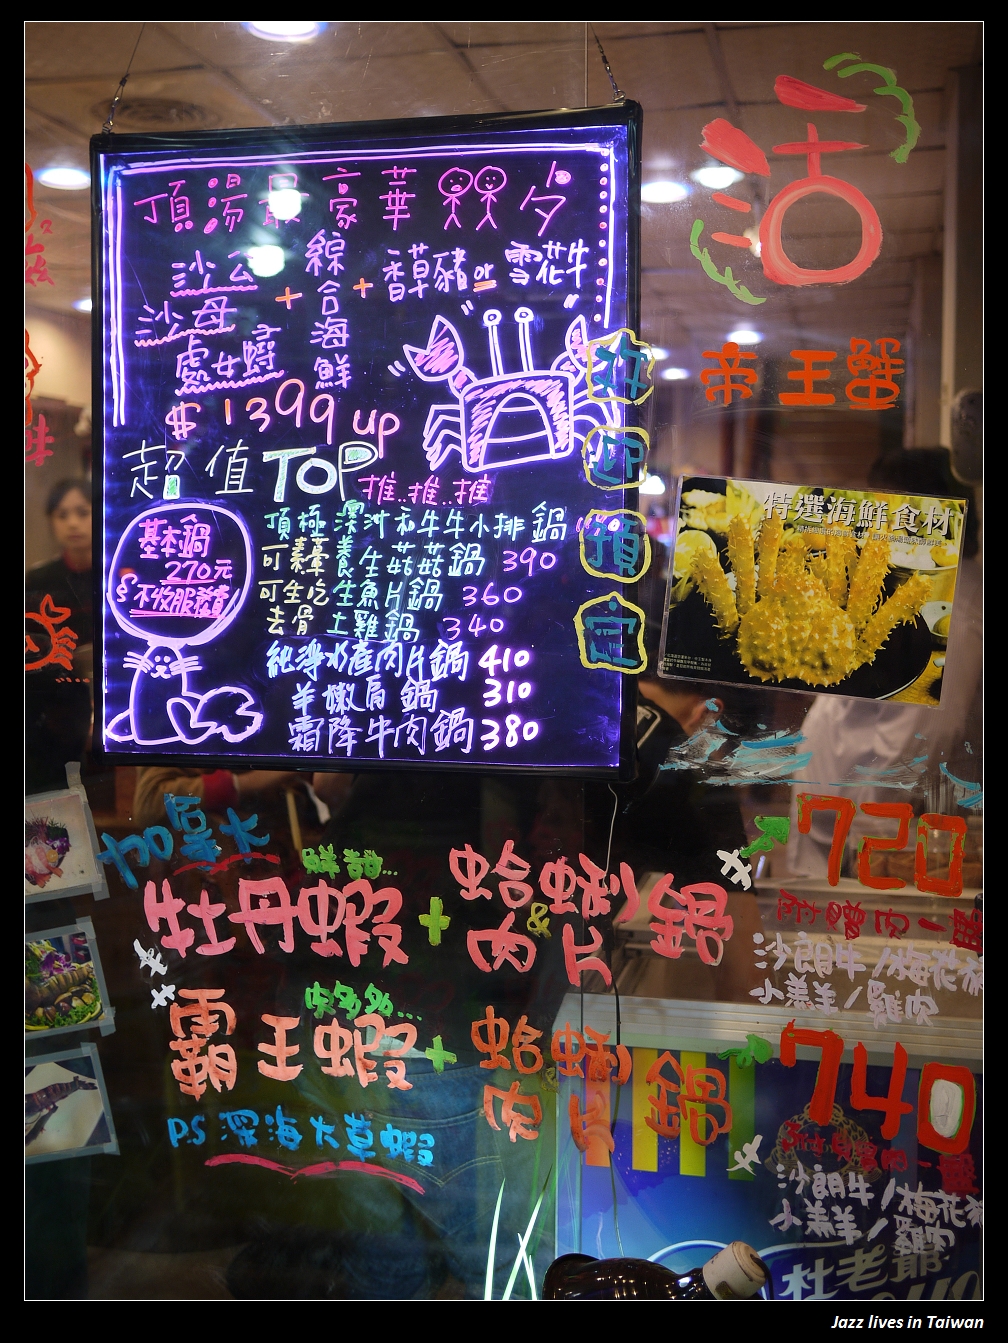 頂湯最豪華
沙公
沙母
處女蟳
+
綜合海鮮
+
香草豬or雪花牛
$1399up
超值TOP推..推..推
基本鍋
270元
不收服務費
養生菇菇鍋 390
可生吃生魚片鍋 360
去骨土雞鍋 340
肉片鍋 410
羊嫩肩鍋 310
霜降牛肉鍋 380
歡迎預定
活
帝王蟹
特選海鮮食材
加拿大
鮮甜...
牡丹蝦+蛤蜊&肉片鍋
720
附贈肉一盤
沙朗牛/梅花豬
小羔羊/雞肉
肉多多...
霸王蝦+蛤蜊肉片鍋
740
肉一盤
沙朗牛/梅花豬
小羔羊/雞肉
P.S 深海大草蝦
杜老爺
Jazz lives in Taiwan